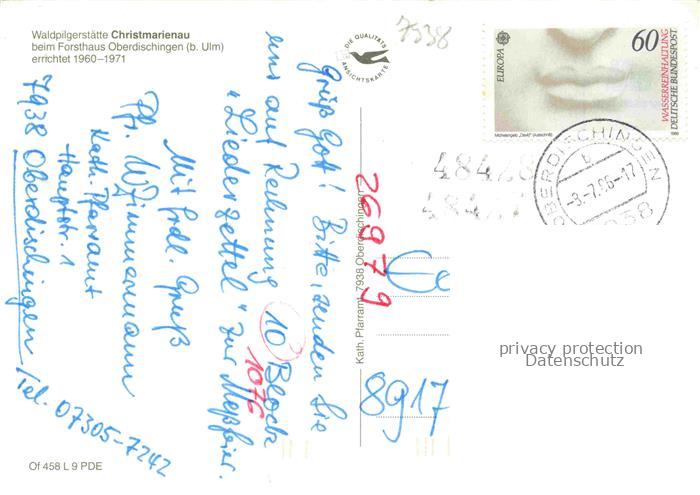 Waldpilgerstätte Christmarienau
beim Forsthaus Oberdischingen (b. Ulm)
errichtet 1960–1971
7938
DIE QUALITÄTS
ANSICHTSKARTE
EUROPA
60
WASSERREINHALTUNG
DEUTSCHE BUNDESPOST
Michelangelo „David“ (Ausschnitt)
1986
OBERDISCHINGEN
b
-3.-7.86-17
7938
48428
Grüß Gott! Bitte, senden Sie
uns auf Rechnung 10 Block
"Liederzettel" zur Meßfeier.
1076
Mit frdl. Gruß
Pfr. W. Zimmermann
Kath. Pfarramt
Hauptstr. 1
7938 Oberdischingen
Tel. 07305-7242
Kath. Pfarramt, 7938 Oberdischingen
26979
8917
privacy protection
Datenschutz
Of 458 L 9 PDE